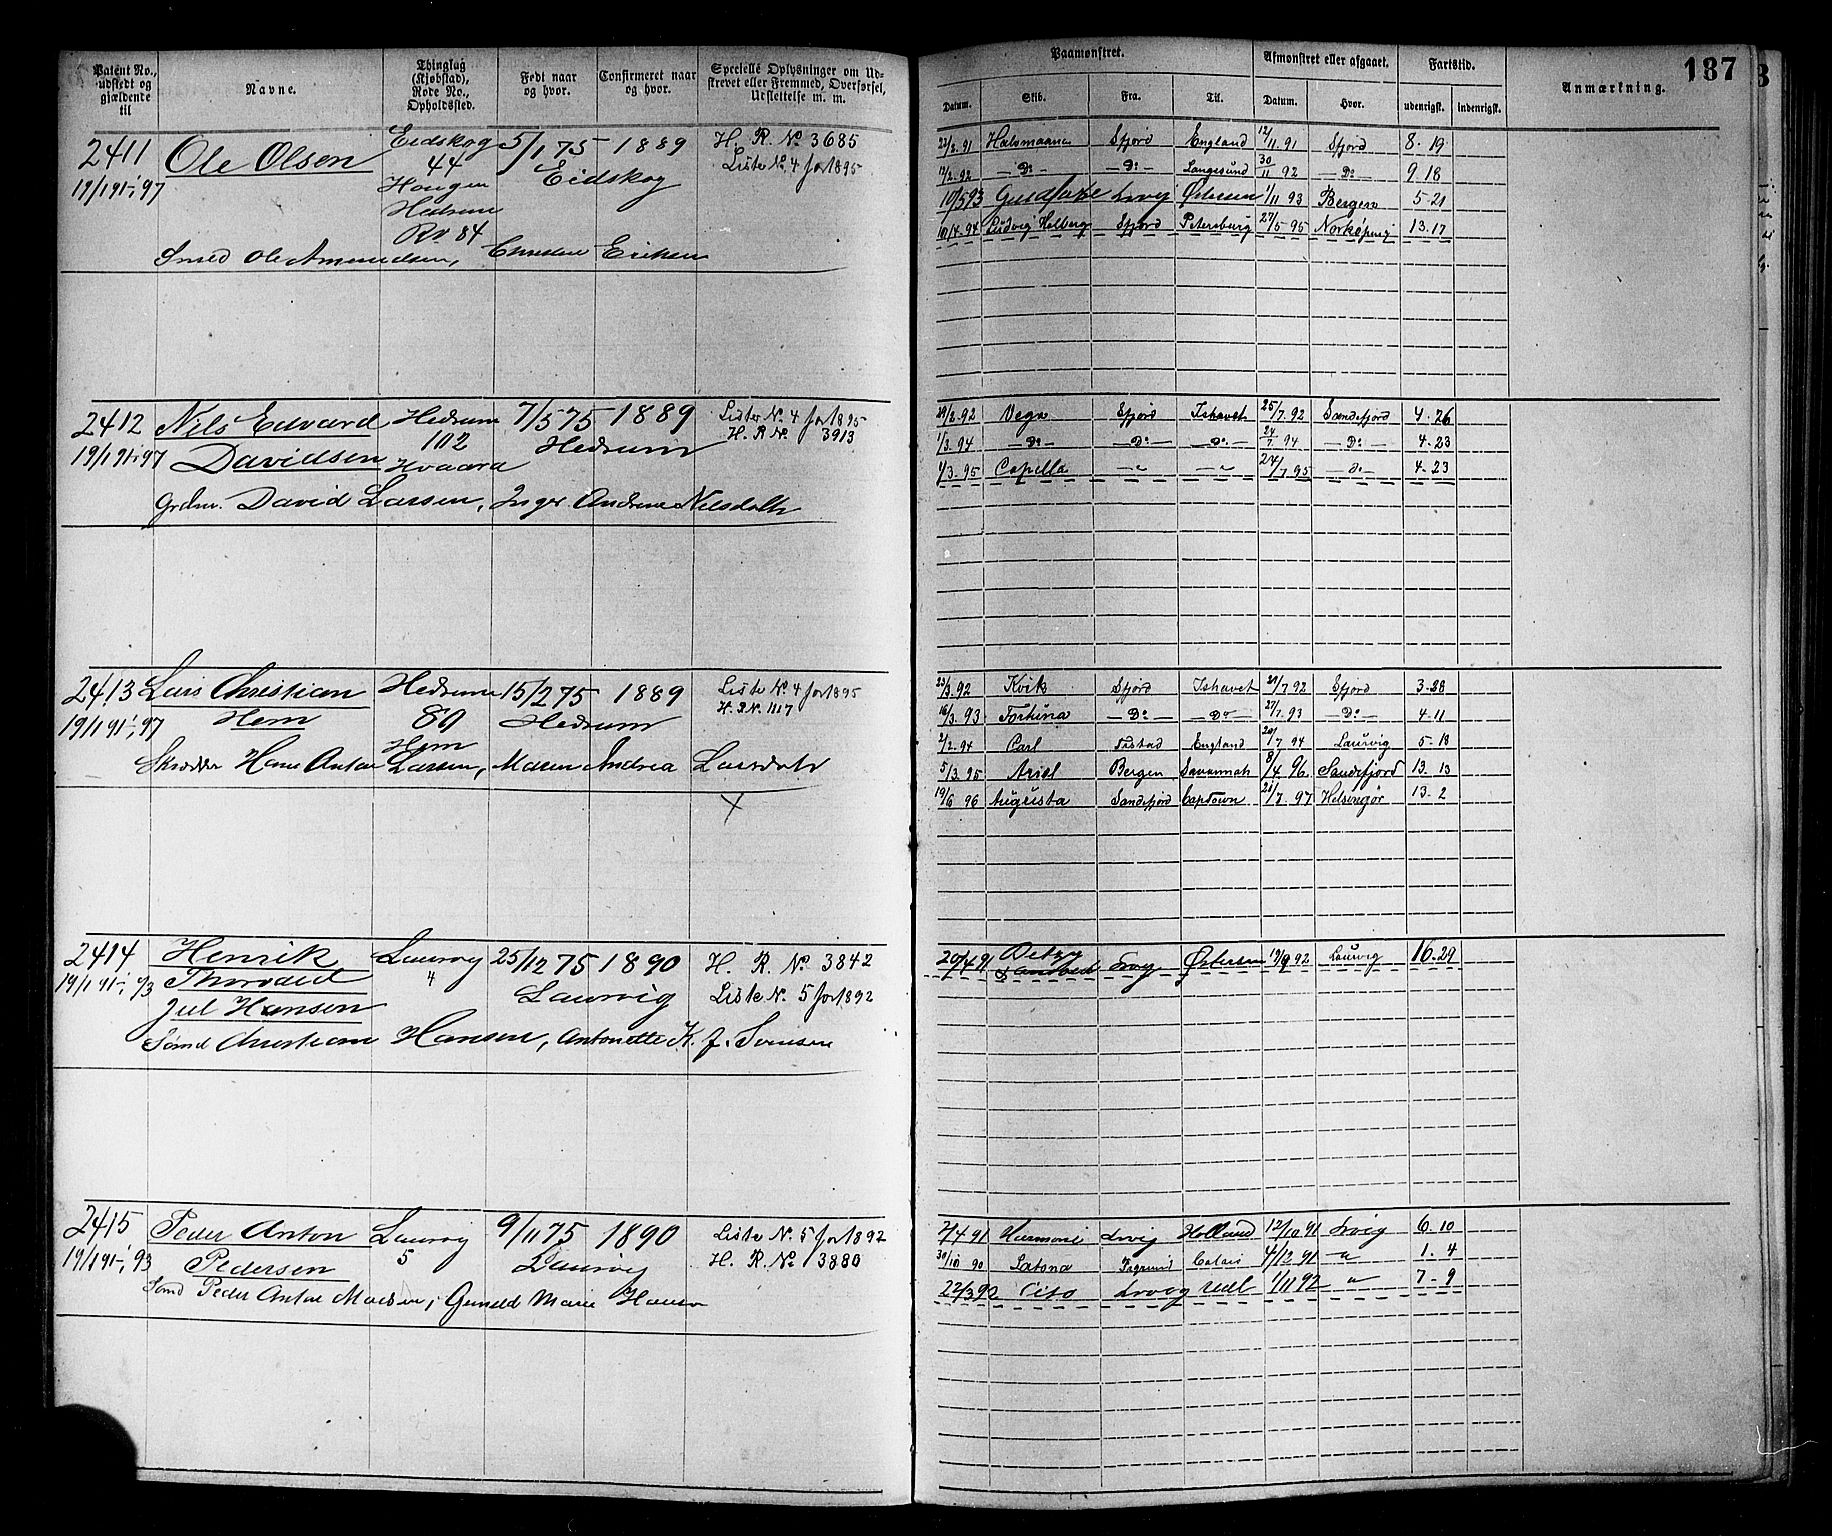 Patent No., udstedt og gjældende til | Navne. | Thinglag (Kjøbstad), Rode No., Opholdssted. | Født naar og hvor. | Confirmeret naar og hvor. | Specielle Oplysninger om Udskrevet eller Fremmed, Overførsel, Udslettelse m. m.
2411 Ole Olsen Eidskog 5/1 75 1889 H. R. No 3685
19/1 91-'97 44 Eidskog Liste No 4 for 1895
Haugen
Hedrum
Ro 84
Smed Ole Amundsen, Eriksen
2412 Nils Edvard Hedrum 7/5 75 1889 Liste No 4 for 1895
19/1 91-'97 Davidsen 102 Hedrum H. R No 3913
Hvaara
Grdm. David Larsen, Inger Andrea Nilsdatter
2413 Lars Christian Hedrum 15/2 75 1889 Liste No 4 for 1895
19/1 91-'97 Hem 80 Hedrum H. R No 1117
Hem
Skrædder Hans Anton Larsen, Maren Andrea Larsdatr
X
2414 Henrik Laurvig 25/12 75 1890 H. R. No 3842
19/1 91- Thorvald 4 Laurvig Liste No 5 for 1892
Juel Hansen
Sømd Christian Hansen, Antonette K. J.
2415 Peder Anton Laurvig 9/11 75 1890 Liste No 5 for 1892
19/1 91-'93 Pedersen 5 Laurvig H. R. No 3880
Sømd Peder Anton Madsen, Marie Hansen
187
Paamønstret. | Afmønstret eller afgaaet. | Fartstid. | Anmærkning.
Datum. | Skib. | Fra. | Til. | Datum. | Hvor. | udenrigst. | indenrigst.
Sfjord England 12/11 91 Sfjord 8. 19
12/2. 92 — Do — — Do — Langesund 30/11 92 — Do — 9. 18
10/5 93 Lrvig Østersøen 1/11 93 Bergen 5. 21
10/4. 94 Ludvig Holberg Sfjord Petersburg 27/5 95 Norkøping 13. 17
29/2. 92 Vega Sfjord Ishavet 25/7. 92 Sandefjord 4. 26
1/3. 94 — Do — — Do — — Do — 24/7. 94 — Do — 4. 23
4/3. 95 Capella — " — — " — 24/7. 95 — Do — 4. 23
23/3. 92 Kvik Sfjord Ishavet 20/7. 92 Sfjord 3. 28
16/3. 93 Fortuna — Do — — Do — 27/7. 93 — Do — 4. 11
2/2. 94 Carl England 20/7 94 Laurvig 5. 18
5/3. 95 Ariel Bergen Savannah 8/4 96. Sandefjord 13. 13
19/6 96 Augusta Sandefjord Captown 21/7. 97 Helsingør 13. 2
20/4 91 Betzy Lrvig Østersøen 19/9 92 Laurvig 16. 29
7/4 91 Harmoni Lrvig Holland 12/10 91 Lrvig 6. 10
30/10 90 Latona Calais 4/12 91 " 1. 4
22/3 92 Cito Lrvig Udl 1/11 92 " 7. 9